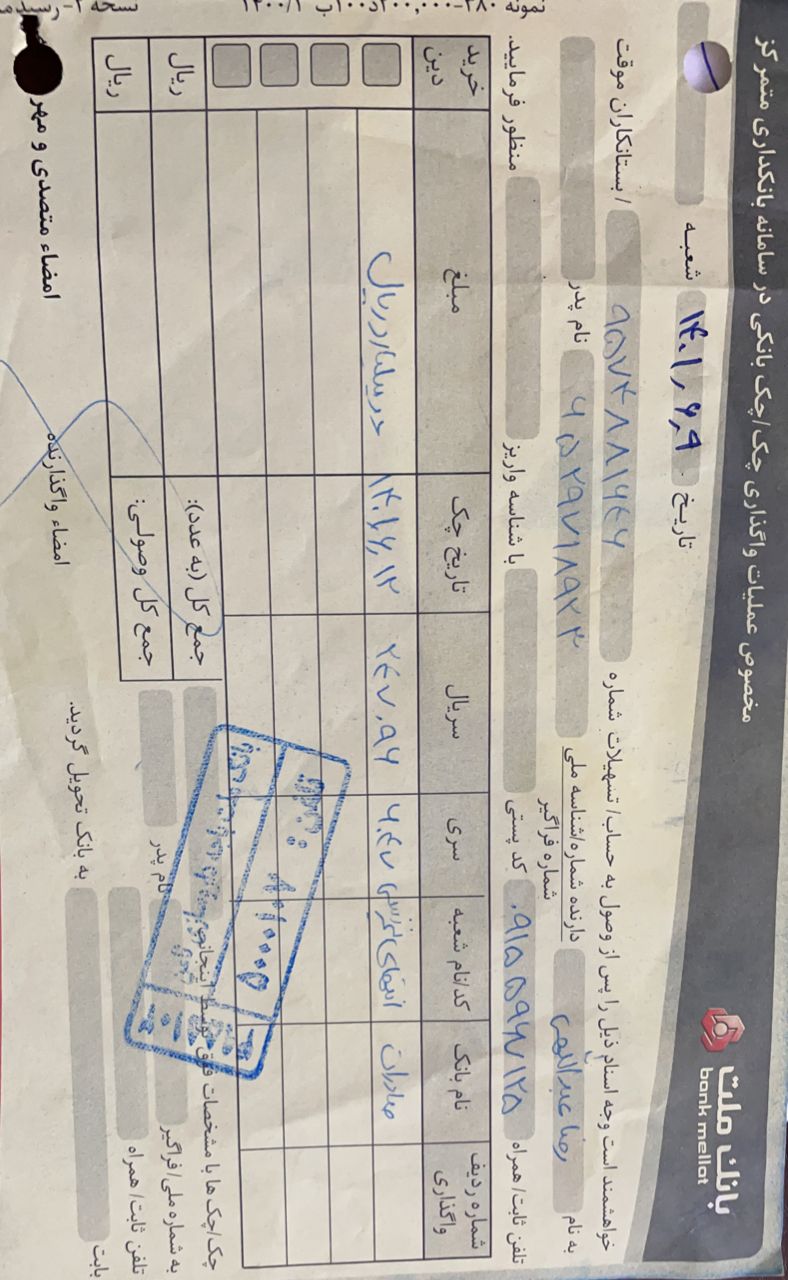 مخصوص عملیات واگذاری چک/چک بانکی در سامانه بانکداری متمرکز
بانك ملت
bank mellat
تاریخ ۱۴۰۱٫۶٫۹ شعبه
خواهشمند است وجه اسناد ذیل را پس از وصول به حساب/ تسهیلات شماره ۹۵۷۴۸۸۱۶۴۶ / بستانکاران موقت
به نام رضا عبداللهی دارنده شماره/شناسه ملی ۶۵۲۹۷۱۸۹۲۳ نام پدر
شماره فراگیر
تلفن ثابت/ همراه ۰۹۱۵۵۹۶۷۱۲۵ کد پستی با شناسه واریز منظور فرمایید.
شماره ردیف واگذاری نام بانک کد/نام شعبه سری سریال تاریخ چک مبلغ خرید دین
صادرات انتهای ۶۰۴۷ ۲۴۷۰۹۶ ۱۴۰۱٫۶٫۱۲ دو میلیارد ریال
جمع کل (به عدد): ریال
جمع کل وصولی: ریال
چک/چک ها با مشخصات فوق توسط اینجانب
به شماره ملی/فراگیر نام پدر
تلفن ثابت/ همراه
بابت به بانک تحویل گردید.
امضاء واگذارنده
امضاء متصدی و مهر